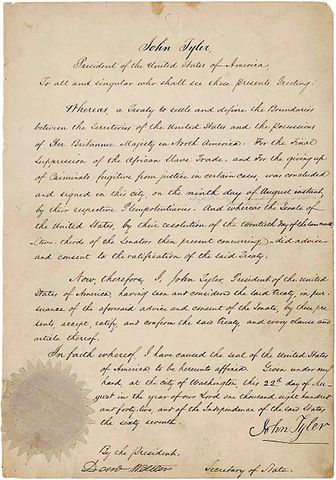 John Tyler,
President of the United States of America,
To all and singular who shall see these presents Greeting:
Whereas, a Treaty to settle and define the Boundaries
between the Territories of the United States and the possessions
of Her Britannic Majesty in North America: For the Final
Suppression of the African Slave Trade: and For the giving up
of Criminals, fugitive from justice in certain cases, was concluded
and signed in this city, on the ninth day of August instant,
by their respective Plenipotentiaries: And whereas the Senate of
the United States, by their resolution of the twentieth day of the
two-thirds of the Senators then present concurring, did advise
and consent to the ratification of the said Treaty:
Now, therefore, I, John Tyler, President of the United
States of America, having seen and considered the said Treaty, in pur-
suance of the aforesaid advice and consent of the Senate, by these pre-
sents, accept, ratify, and confirm the said Treaty and every clause and
article thereof.
In faith whereof, I have caused the seal of the United States
of America to be hereunto affixed. Given under my
hand, at the city of Washington, this 22d day of Au-
gust in the year of our Lord one thousand eight hundred
and forty two, and of the Independence of the said States,
the sixty seventh.
John Tyler
By the President.
Secretary of State.